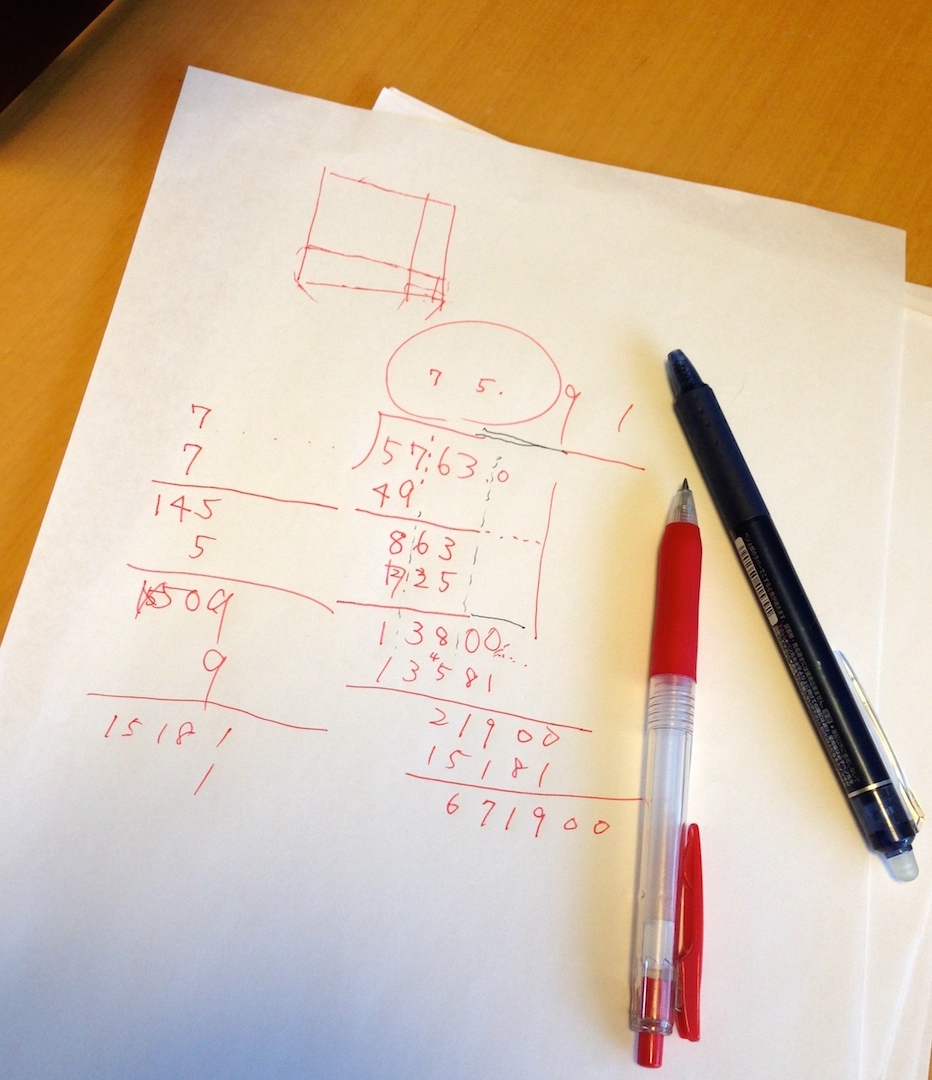 7 5. 9 1
7 5763.0
7 49
145 863
5 725
1509 13800
9 13581
15181 21900
1 15181
671900